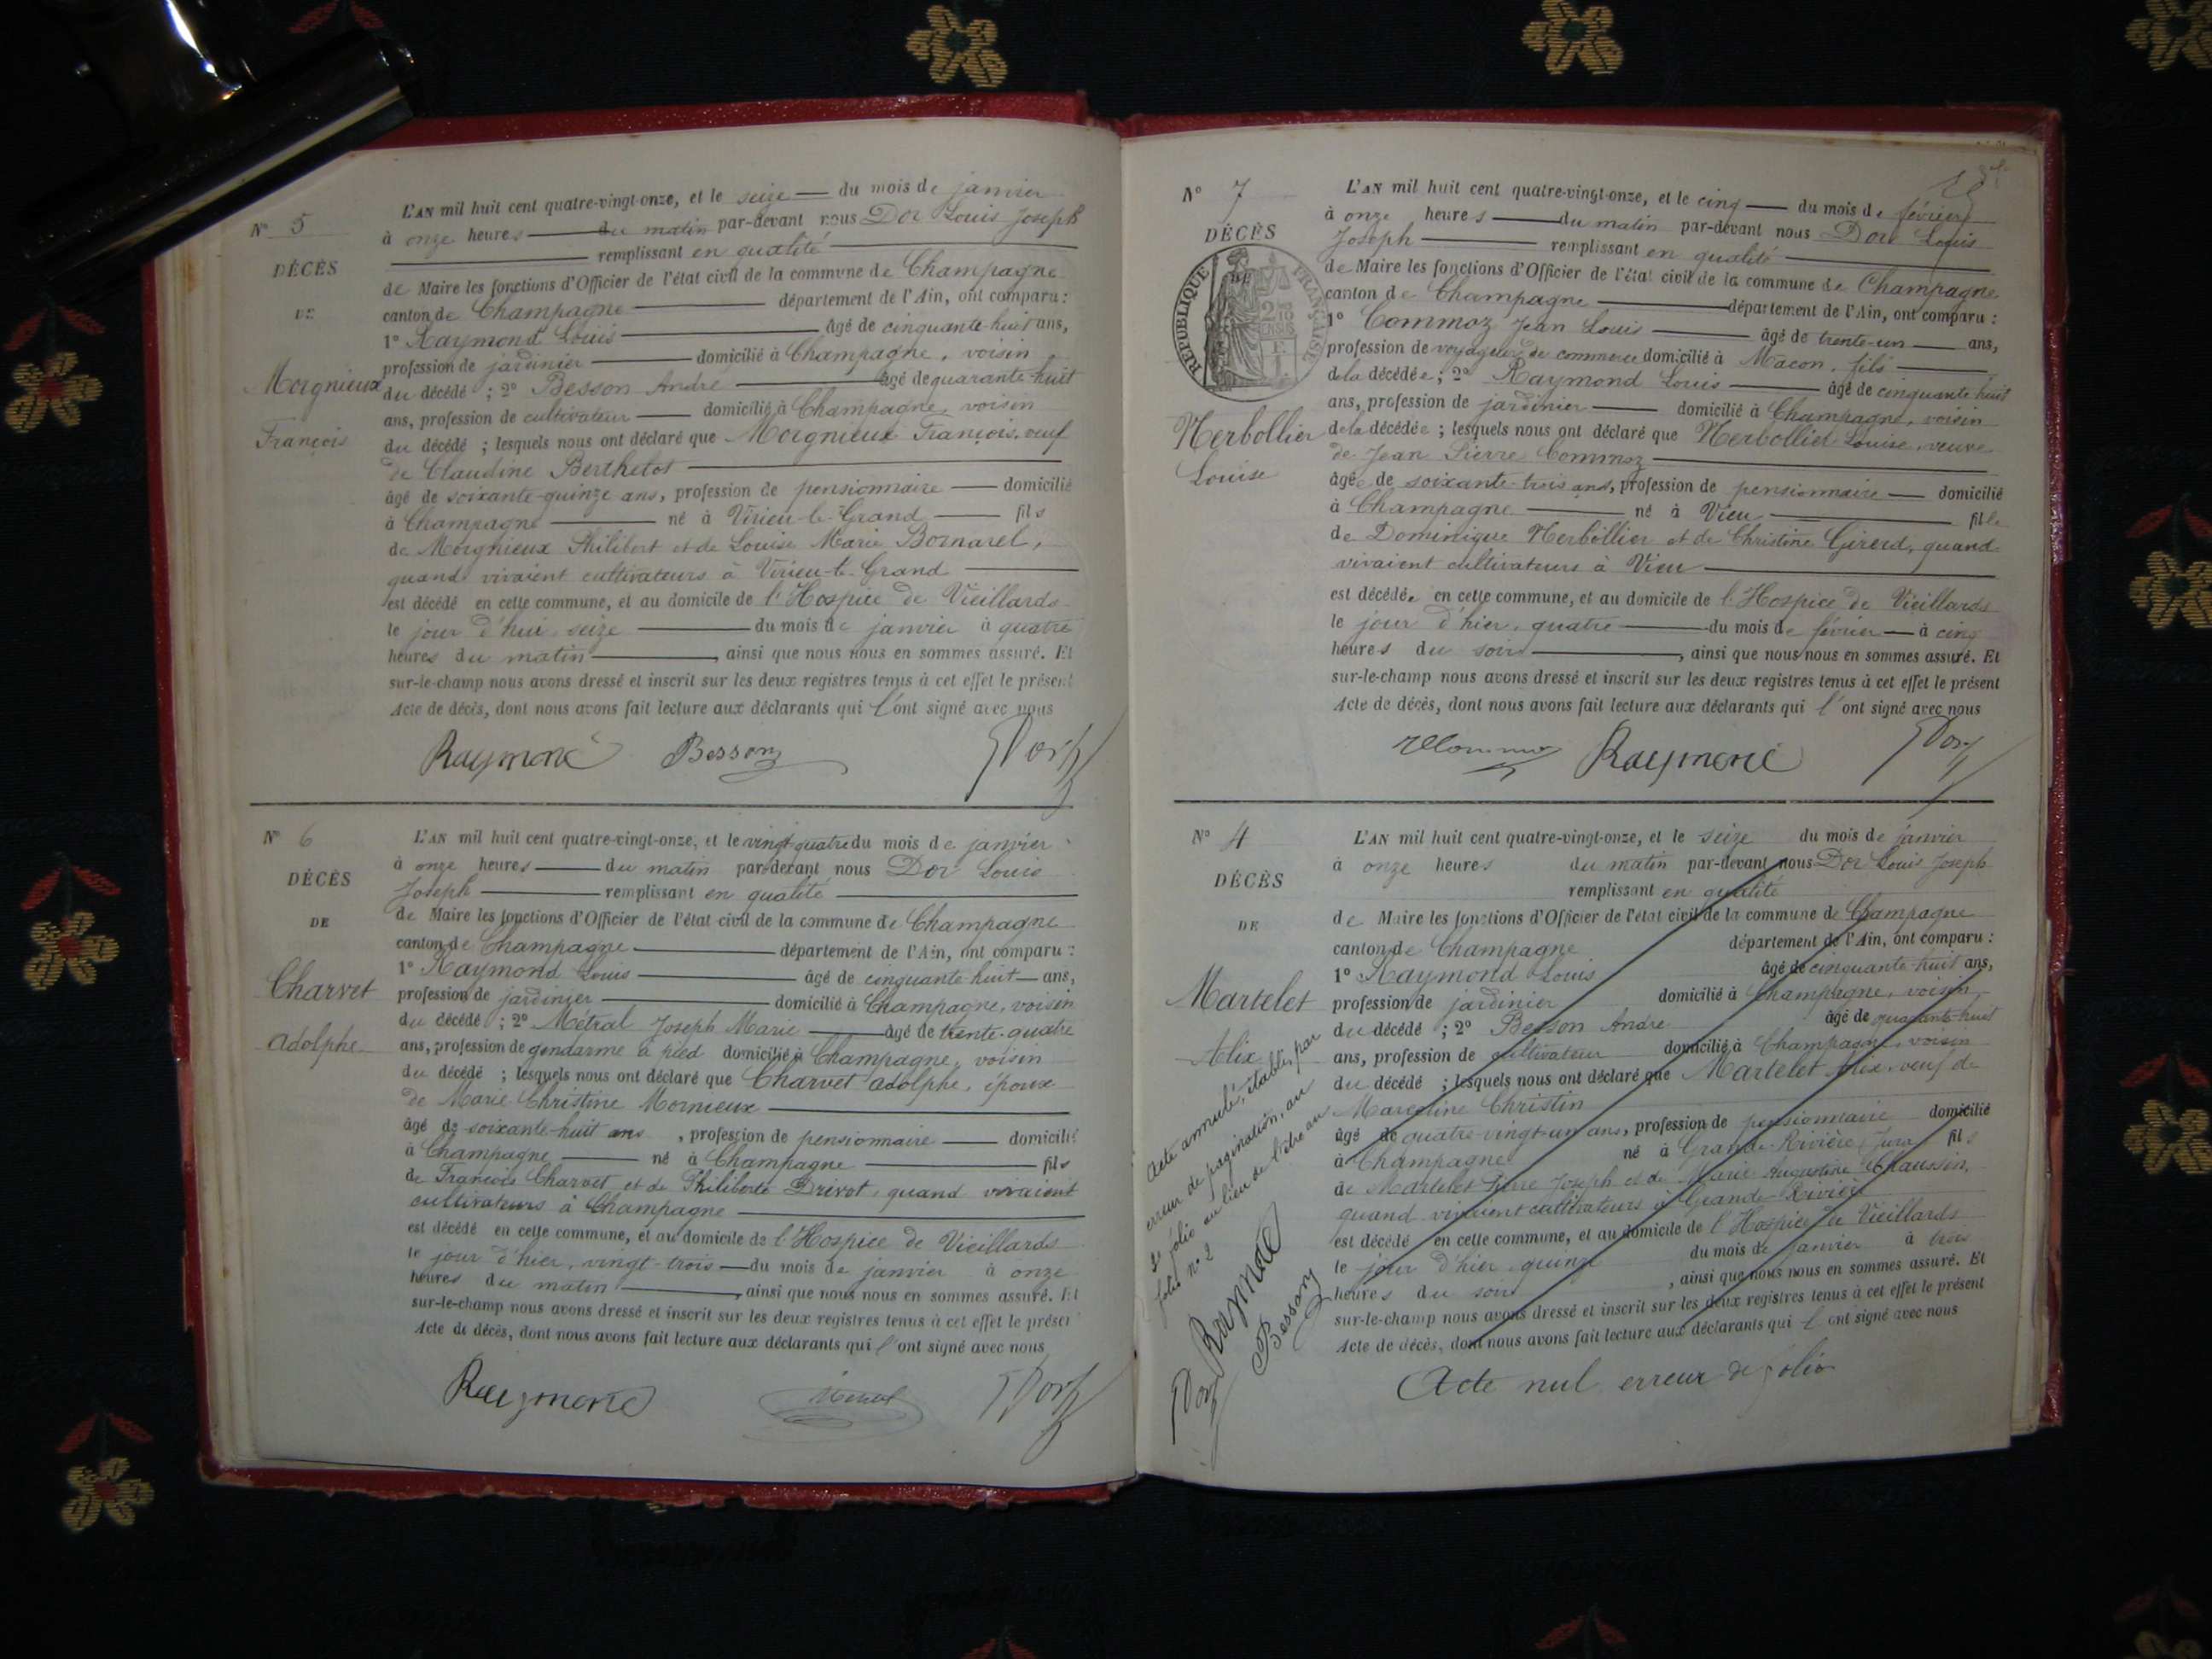 N° 5
DÉCÈS
DE
Morgnieux
François
L'AN mil huit cent quatre-vingt-onze, et le seize du mois de janvier
à onze heures du matin par-devant nous Dor Louis Joseph
remplissant en qualité
de Maire les fonctions d'Officier de l'état civil de la commune de Champagne
canton de Champagne département de l'Ain, ont comparu :
1° Raymond Louis âgé de cinquante-huit ans,
profession de jardinier domicilié à Champagne, voisin
du décédé ; 2° Besson André âgé de quarante-huit
ans, profession de cultivateur domicilié à Champagne, voisin
du décédé ; lesquels nous ont déclaré que Morgnieux François, veuf
de Claudine Berthelot
âgé de soixante-quinze ans, profession de pensionnaire domicilié
à Champagne né à Virieu-le-Grand fils
de Morgnieux Philibert et de Louise Marie Bornarel,
quand vivaient cultivateurs à Virieu-le-Grand
est décédé en cette commune, et au domicile de l'Hospice de Vieillards
le jour d'hui seize du mois de janvier à quatre
heures du matin, ainsi que nous nous en sommes assuré. Et
sur-le-champ nous avons dressé et inscrit sur les deux registres tenus à cet effet le présent
Acte de décès, dont nous avons fait lecture aux déclarants qui l'ont signé avec nous
Raymond Besson Dor
N° 6
DÉCÈS
DE
Charvet
Adolphe
L'AN mil huit cent quatre-vingt-onze, et le vingt-quatre du mois de janvier
à onze heures du matin par-devant nous Dor Louis
Joseph remplissant en qualité
de Maire les fonctions d'Officier de l'état civil de la commune de Champagne
canton de Champagne département de l'Ain, ont comparu :
1° Raymond Louis âgé de cinquante-huit ans,
profession de jardinier domicilié à Champagne, voisin
du décédé ; 2° Métral Joseph Marie âgé de trente-quatre
ans, profession de gendarme à pied domicilié à Champagne, voisin
du décédé ; lesquels nous ont déclaré que Charvet Adolphe, époux
de Marie Christine Mornieux
âgé de soixante-huit ans, profession de pensionnaire domicilié
à Champagne né à Champagne fils
de François Charvet et de Philiberte Drivot, quand vivaient
cultivateurs à Champagne
est décédé en cette commune, et au domicile de l'Hospice de Vieillards
le jour d'hier, vingt-trois du mois de janvier à onze
heures du matin, ainsi que nous nous en sommes assuré. Et
sur-le-champ nous avons dressé et inscrit sur les deux registres tenus à cet effet le présent
Acte de décès, dont nous avons fait lecture aux déclarants qui l'ont signé avec nous
Raymond Métral Dor
N° 7
DÉCÈS
DE
RÉPUBLIQUE FRANÇAISE
Herbollier
Louise
L'AN mil huit cent quatre-vingt-onze, et le cinq du mois de février
à onze heures du matin par-devant nous Dor Louis
Joseph remplissant en qualité
de Maire les fonctions d'Officier de l'état civil de la commune de Champagne
canton de Champagne département de l'Ain, ont comparu :
1° Commoz Jean Louis âgé de trente-un ans,
profession de voyageur de commerce domicilié à Macon, fils
de la décédée ; 2° Raymond Louis âgé de cinquante huit
ans, profession de jardinier domicilié à Champagne, voisin
de la décédée ; lesquels nous ont déclaré que Herbollier Louise, veuve
de Jean Pierre Commoz
âgée de soixante-trois ans, profession de pensionnaire domicilié
à Champagne né à Vieu fille
de Dominique Herbollier et de Christine Girerd, quand
vivaient cultivateurs à Vieu
est décédée en cette commune, et au domicile de l'Hospice de Vieillards
le jour d'hier, quatre du mois de février à cinq
heures du soir, ainsi que nous nous en sommes assuré. Et
sur-le-champ nous avons dressé et inscrit sur les deux registres tenus à cet effet le présent
Acte de décès, dont nous avons fait lecture aux déclarants qui l'ont signé avec nous
Raymond Dor
N° 4
DÉCÈS
DE
Martelet
Alix
Acte annulé, établi, par
erreur de pagination, au
2e folio au lieu de l'être au
folio n° 2
Dor Raymond Besson
L'AN mil huit cent quatre-vingt-onze, et le seize du mois de janvier
à onze heures du matin par-devant nous Dor Louis Joseph
remplissant en qualité
de Maire les fonctions d'Officier de l'état civil de la commune de Champagne
canton de Champagne département de l'Ain, ont comparu :
1° Raymond Louis âgé de cinquante-huit ans,
profession de jardinier domicilié à Champagne, voisin
du décédé ; 2° Besson André âgé de quarante-huit
ans, profession de cultivateur domicilié à Champagne, voisin
du décédé ; lesquels nous ont déclaré que Martelet Alix, veuf de
Marceline Christin
âgé de quatre-vingt-un ans, profession de pensionnaire domicilié
à Champagne né à Grande-Rivière Jura fils
de Martelet Pierre Joseph et de Marie Augustine Chaussin,
quand vivaient cultivateurs à Grande-Rivière
est décédé en cette commune, et au domicile de l'Hospice de Vieillards
le jour d'hier quinze du mois de janvier à trois
heures du soir, ainsi que nous nous en sommes assuré. Et
sur-le-champ nous avons dressé et inscrit sur les deux registres tenus à cet effet le présent
Acte de décès, dont nous avons fait lecture aux déclarants qui l'ont signé avec nous
Acte nul erreur de folio